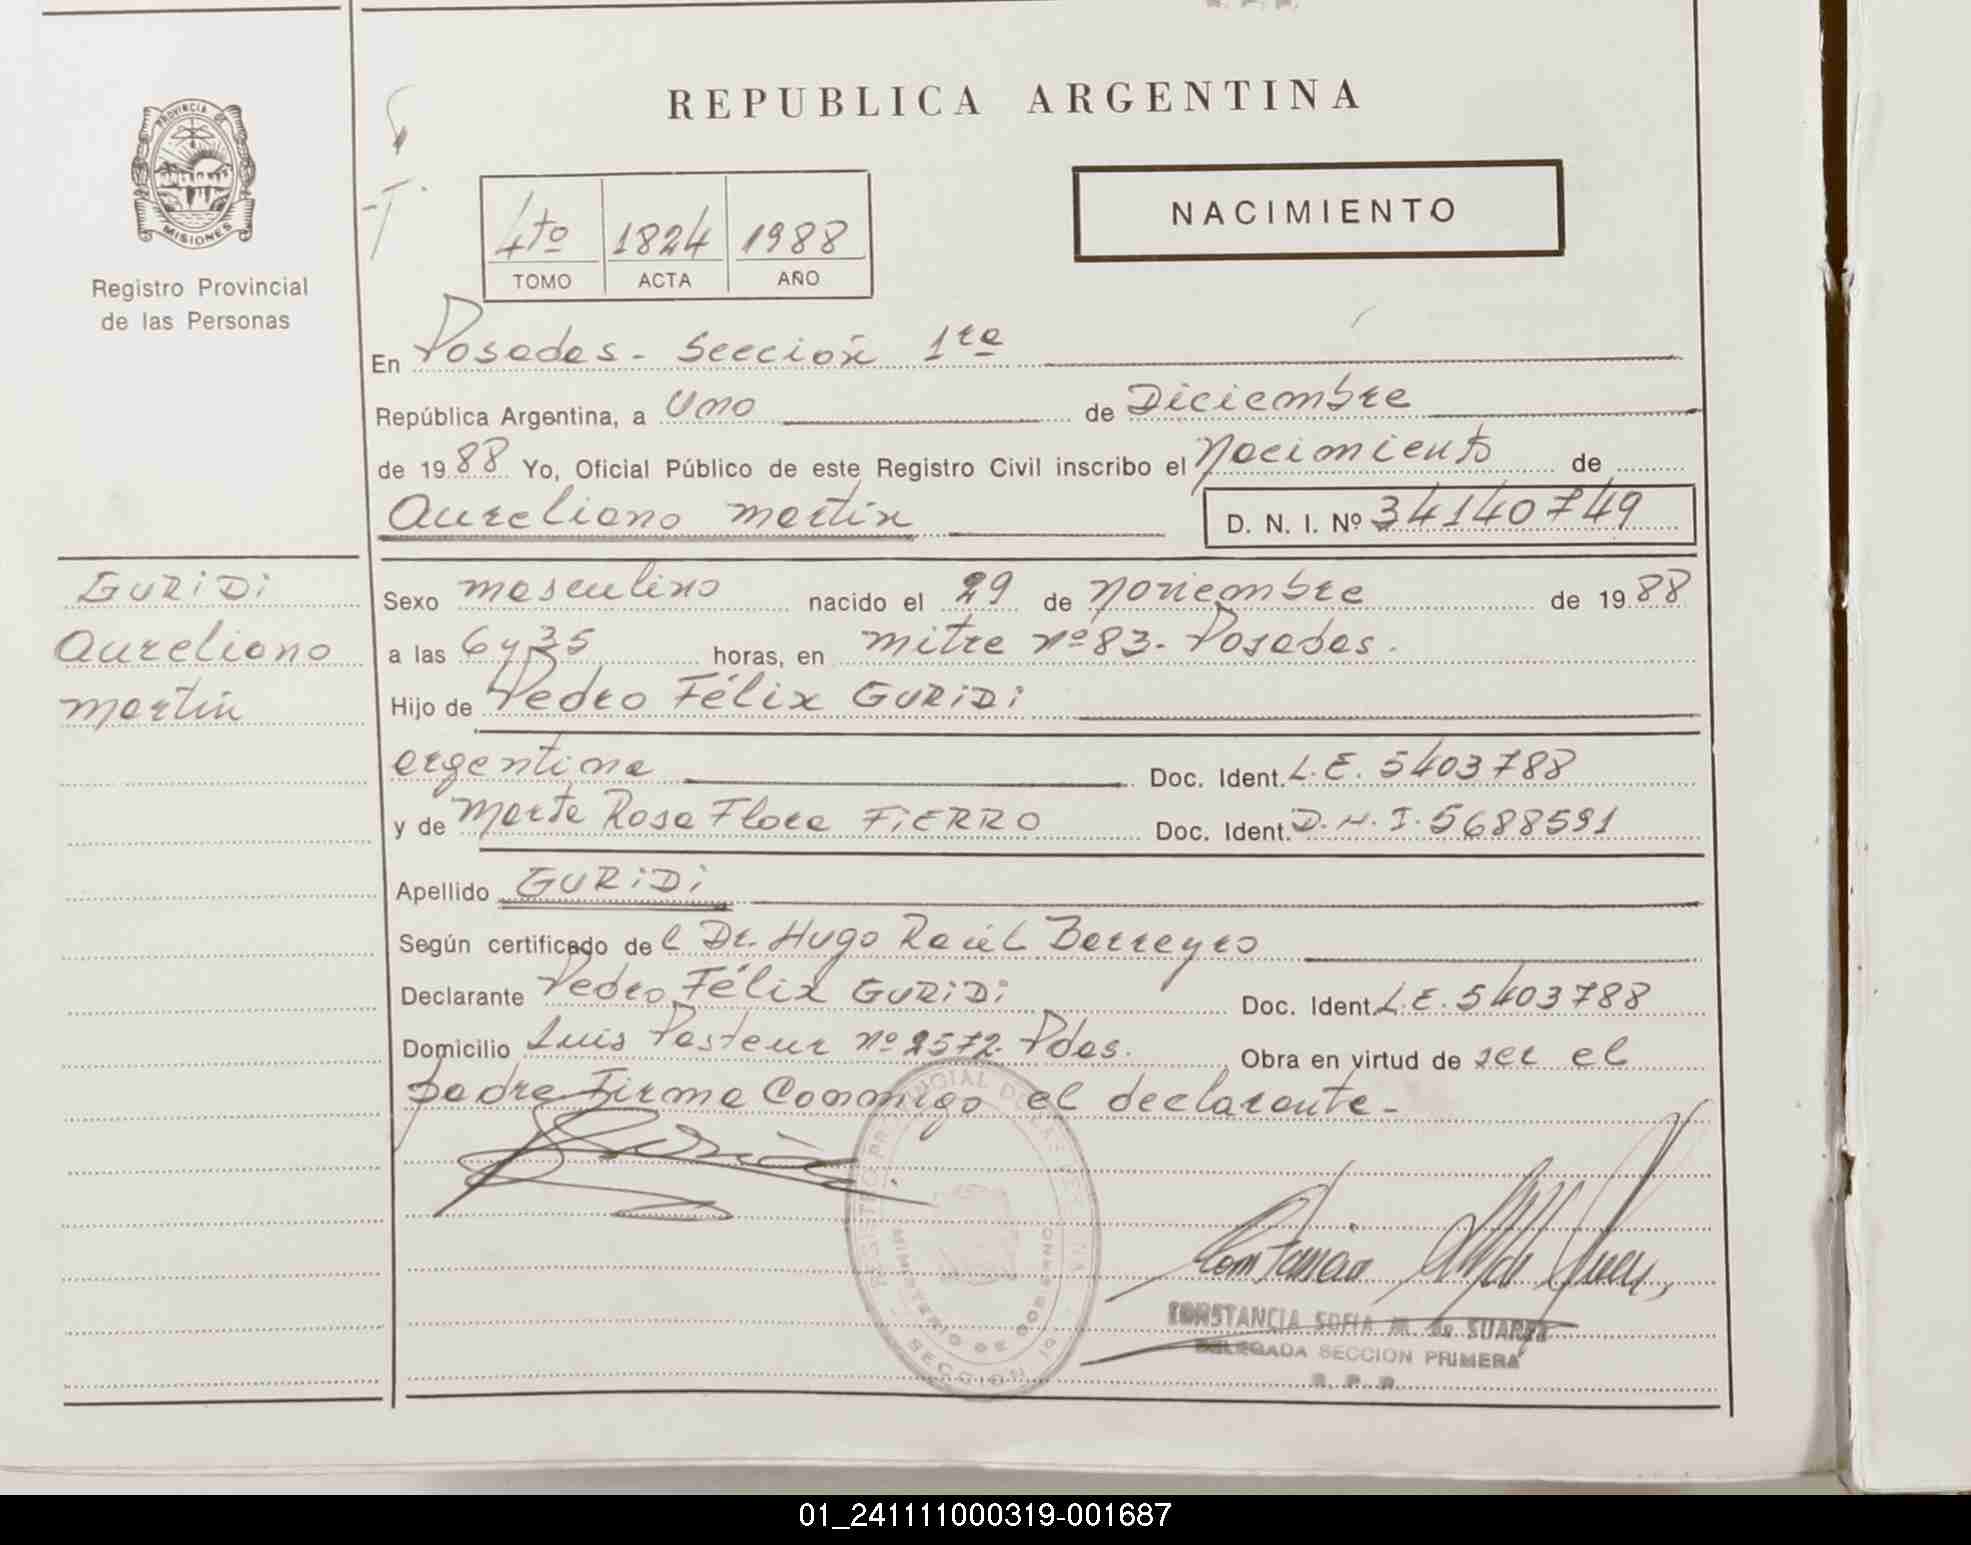 REPUBLICA ARGENTINA
PROVINCIA DE
MISIONES
Registro Provincial
de las Personas
4to 1824 1988
TOMO ACTA AÑO
NACIMIENTO
En Posadas - Sección 1ra
República Argentina, a Uno de Diciembre
de 1988 Yo, Oficial Público de este Registro Civil inscribo el Nacimiento de
Aureliano Martín D. N. I. Nº 34140749
GURIDI
Aureliano
Martín
Sexo masculino nacido el 29 de Noviembre de 1988
a las 6 y 35 horas, en Mitre nº 83 - Posadas.
Hijo de Pedro Félix GURIDI
argentina Doc. Ident. L.E. 5403788
y de Marta Rosa Flora FIERRO Doc. Ident. D.N.I. 5688591
Apellido GURIDI
Según certificado de l Dr. Hugo Raúl Barreyro
Declarante Pedro Félix GURIDI Doc. Ident. L.E. 5403788
Domicilio Luis Pasteur nº 2572 Pdas. Obra en virtud de ser el
padre Firma Conmigo el declarante -
REGISTRO PROVINCIAL DE LAS PERSONAS
MINISTERIO DE GOBIERNO
SECCION 1a
CONSTANCIA SOFIA M. de SUAREZ
DELEGADA SECCION PRIMERA
R. P. P.
01_241111000319-001687